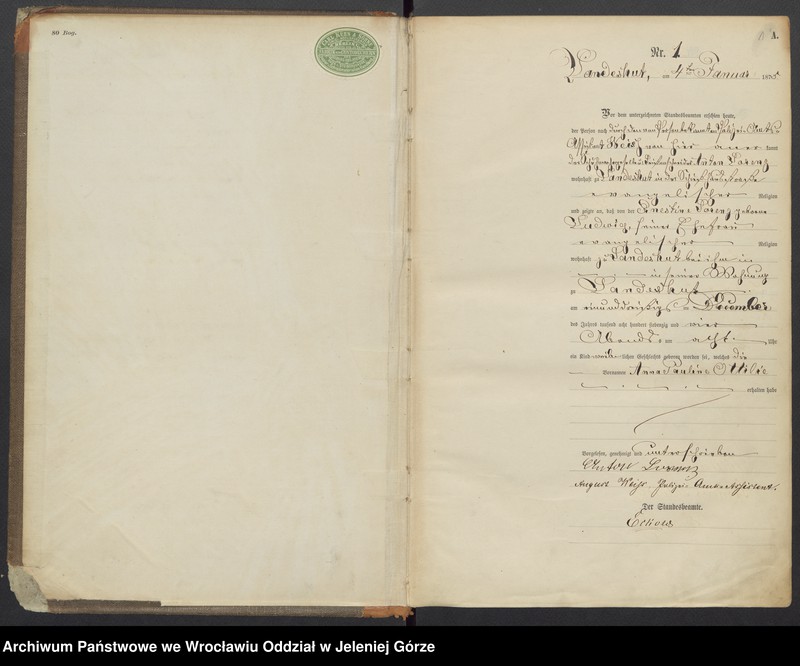 80 Bog.
A.
Nr. 1
Landeshut, am 4ten Januar 1875
Vor dem unterzeichneten Standesbeamten erschien heute,
der Person nach durch den von Person bekannten Polizei-Amts-
Assistent Weiß von hier anerkannt
der Anton Lorenz
wohnhaft zu Landeshut in der
evangelischer Religion
und zeigte an, daß von der Ernestine Lorenz geborene
Ludwig, seiner Ehefrau
evangelischer Religion
wohnhaft zu Landeshut bei ihm in
in seiner Wohnung
zu Landeshut
am einunddreißigsten December
des Jahres tausend acht hundert siebenzig und vier
Abends um acht Uhr
ein Kind weiblichen Geschlechts geboren worden sei, welches die
Vornamen Anna Pauline Ottilie
erhalten habe
Vorgelesen, genehmigt und unterschrieben
Anton Lorenz
August Weiß Polizei Amts Assistent.
Der Standesbeamte.
Archiwum Państwowe we Wrocławiu Oddział w Jeleniej Górze